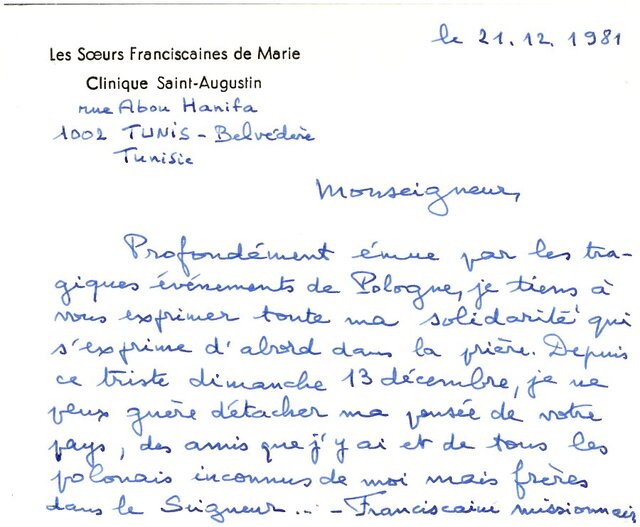 le 21.12.1981
Les Sœurs Franciscaines de Marie
Clinique Saint-Augustin
rue Abou Hanifa
1002 TUNIS - Belvédère
Tunisie
Monseigneur,
Profondément émue par les tra-
giques événements de Pologne, je tiens à
vous exprimer toute ma solidarité qui
s'exprime d'abord dans la prière. Depuis
ce triste dimanche 13 décembre, je ne
peux guère détacher ma pensée de votre
pays, des amis que j'y ai et de tous les
polonais inconnus de moi mais frères
dans le Seigneur... - Franciscaine missionnair